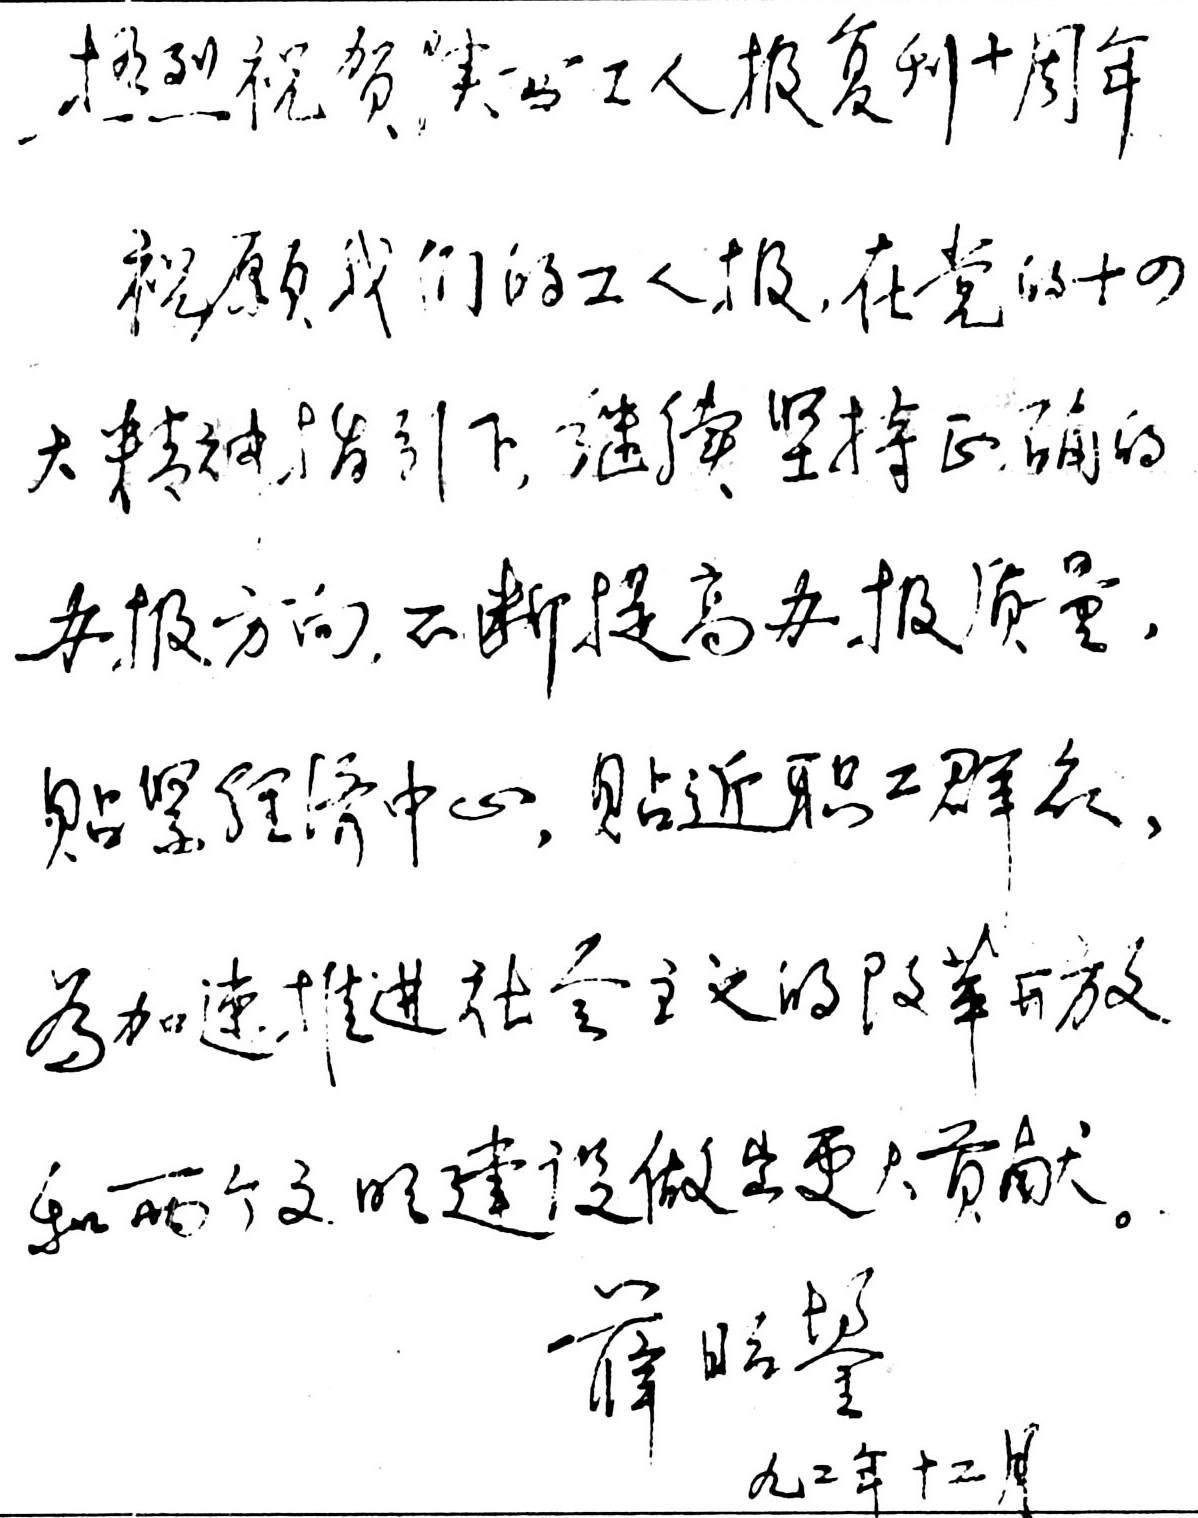 热烈祝贺陕西工人报复刊十周年
祝愿我们的工人报，在党的十四
大精神指引下，继续坚持正确的
办报方向，不断提高办报质量，
贴紧经济中心，贴近职工群众，
为加速推进社会主义的改革开放
和两个文明建设做出更大贡献。
薛昭鋆
九二年十二月